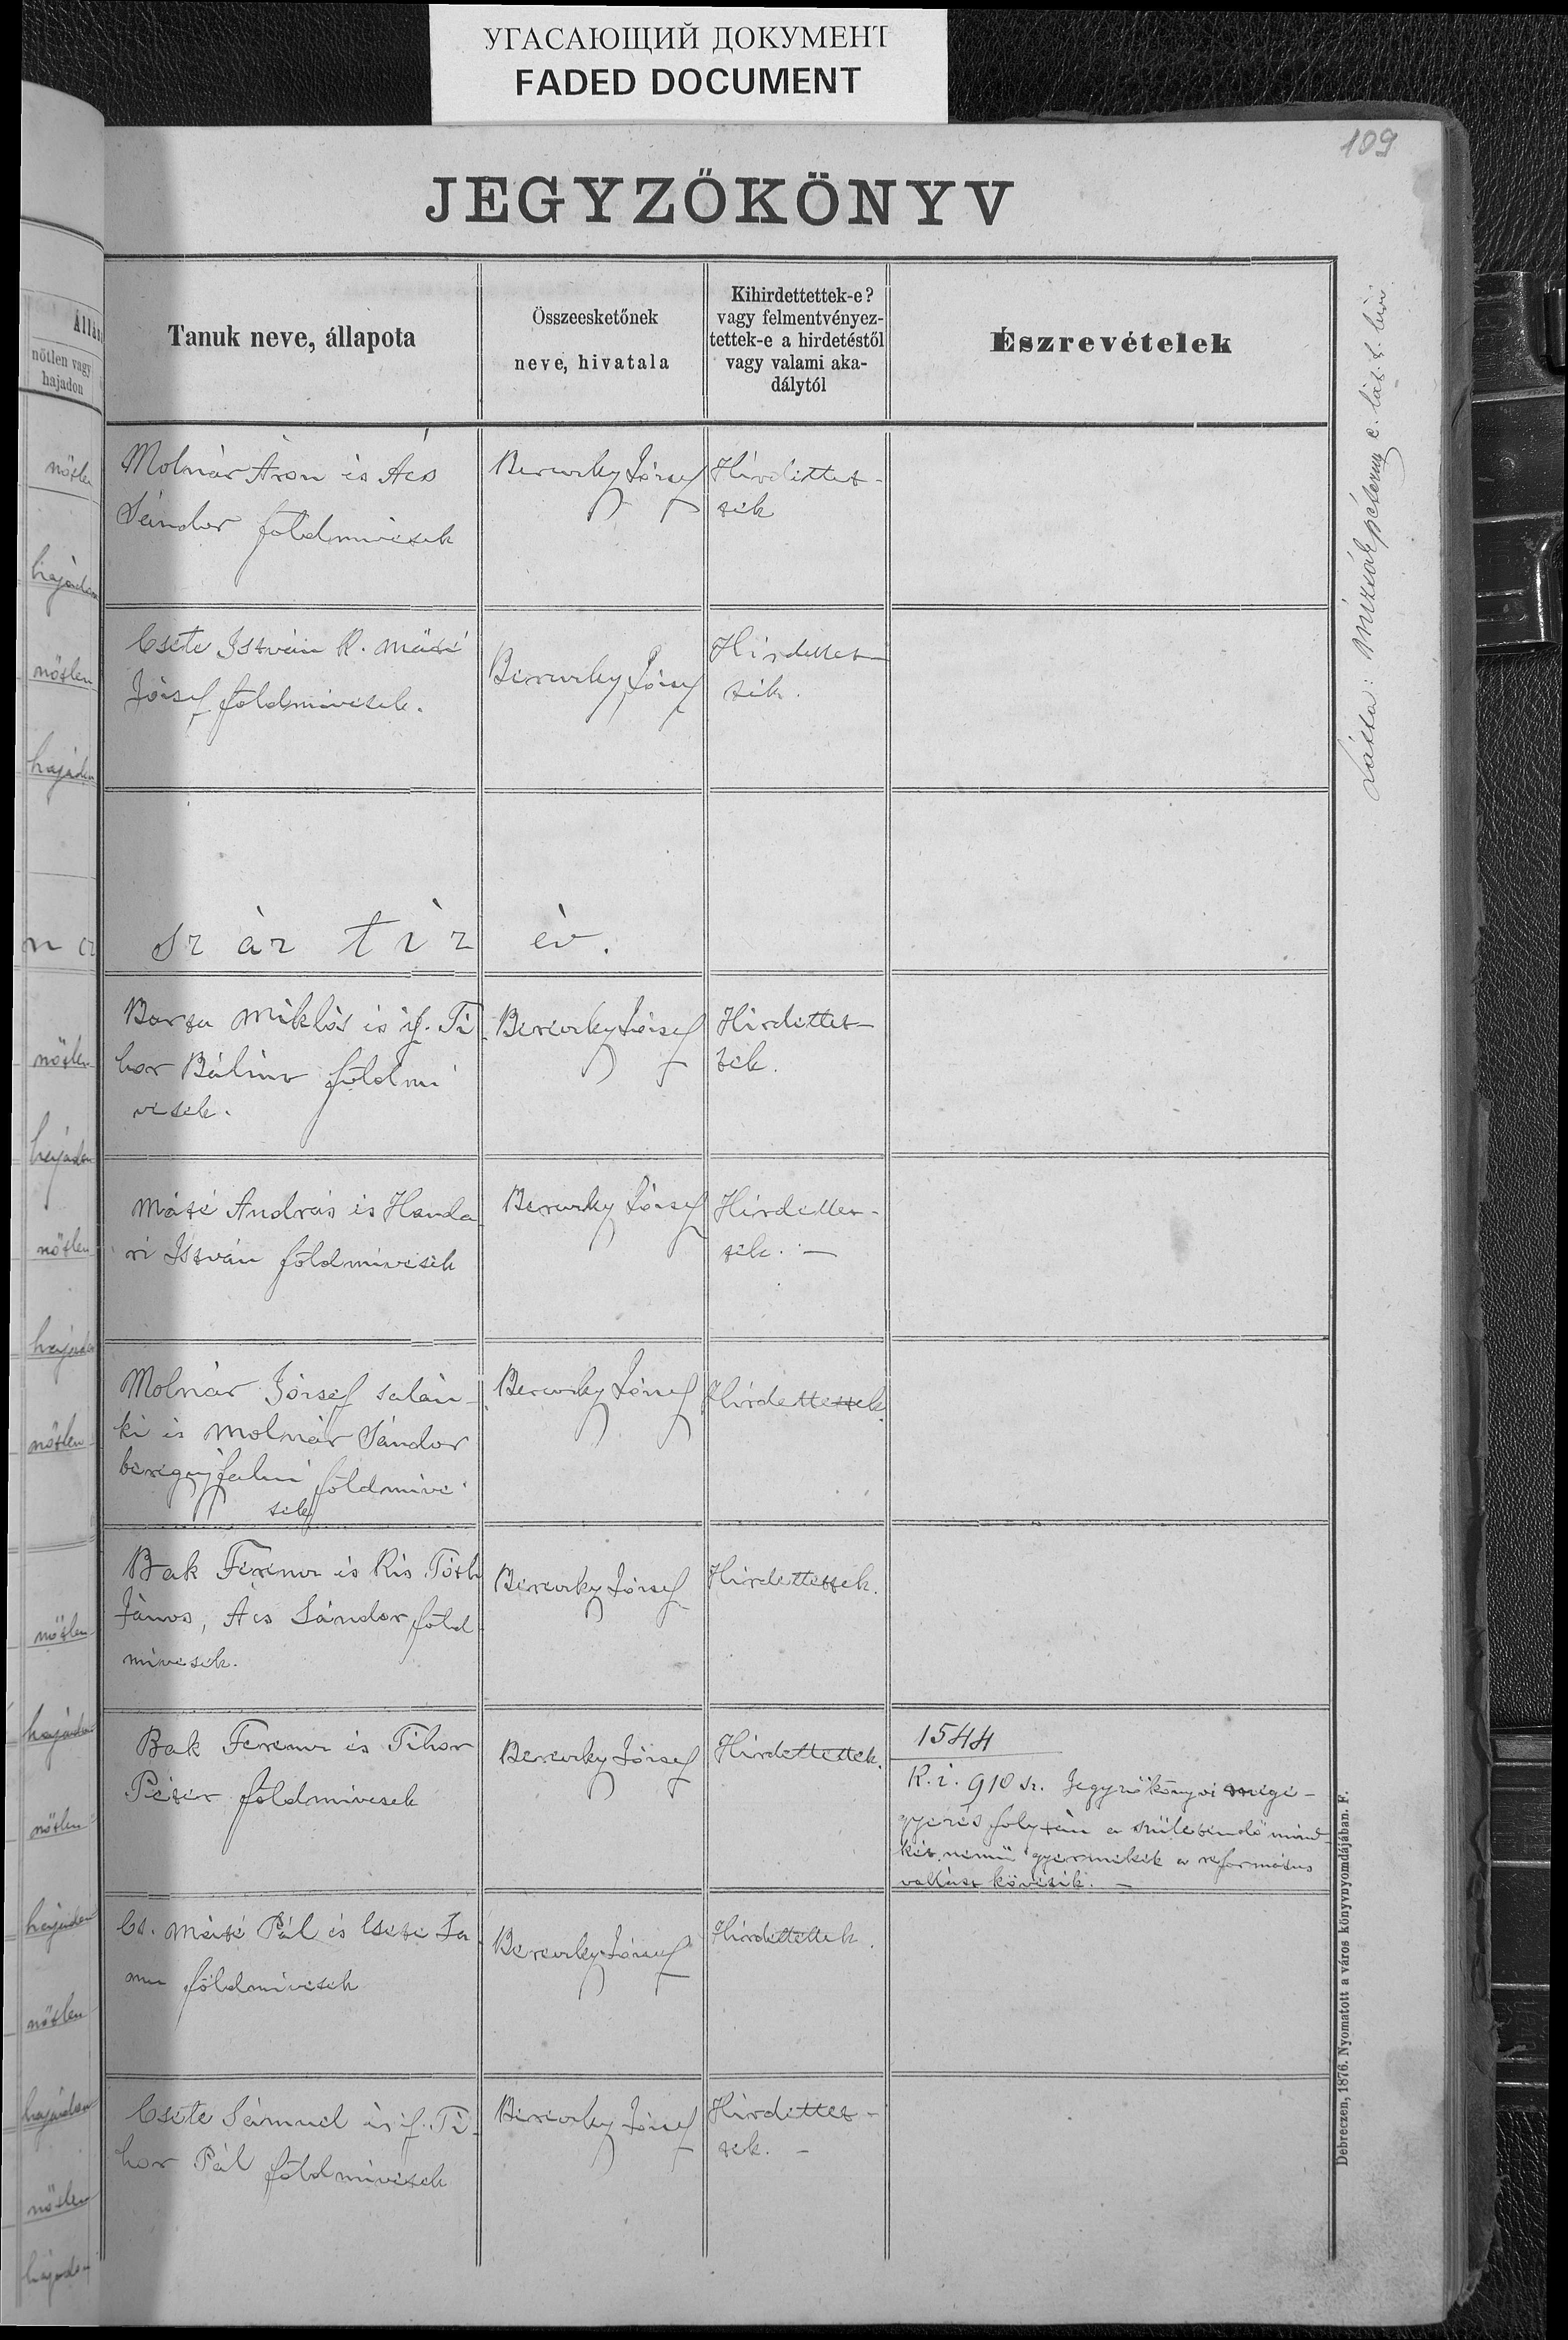 УГАСАЮЩИЙ ДОКУМЕНТ
FADED DOCUMENT
109
JEGYZŐKÖNYV
Állás
nőtlen vagy
hajadon
Tanuk neve, állapota
Összeesketőnek
neve, hivatala
Kihirdettettek-e?
vagy felmentvényez-
tettek-e a hirdetéstől
vagy valami aka-
dálytól
Észrevételek
nőtlen
hajadon
Molnár Áron és Ács
Sándor földmivesek
Bereczky József
Hirdettet-
tek
nőtlen
hajadon
Csete István K. Máté
József földmivesek.
Bereczky József
Hirdettet-
tek.
száz tíz év.
nőtlen
hajadon
Barta Miklós és if. Ti
hor Bálint földmi
vesek.
Bereczky József
Hirdettet-
tek.
nőtlen
hajadon
Máté András és Handa
ri István földmivesek
Bereczky József
Hirdettet-
tek. —
nőtlen
Molnár József salán-
ki és Molnár Sándor
beregujfalui földmive
sek
Bereczky József
Hirdettettek.
nőtlen
hajadon
Bak Ferencz és Kis Tóth
János, Ács Sándor föld
mivesek.
Bereczky József
Hirdettettek.
nőtlen
hajadon
Bak Ferencz és Tihor
Péter földmivesek
Bereczky József
Hirdettettek.
1544
K. i. 910 sz. Jegyzőkönyvi mege-
gyezés folytán a születendő mind-
két nemü gyermekek a református
vallást követik. —
nőtlen
hajadon
Cs. Máté Pál és Csete Sa
mu földmivesek
Bereczky József
Hirdettettek.
nőtlen
hajadon
Csete Sámuel és if. Ti-
hor Pál földmivesek
Bereczky József
Hirdettet-
tek. —
Látta:
Debreczen, 1876. Nyomatott a város könyvnyomdájában. F.